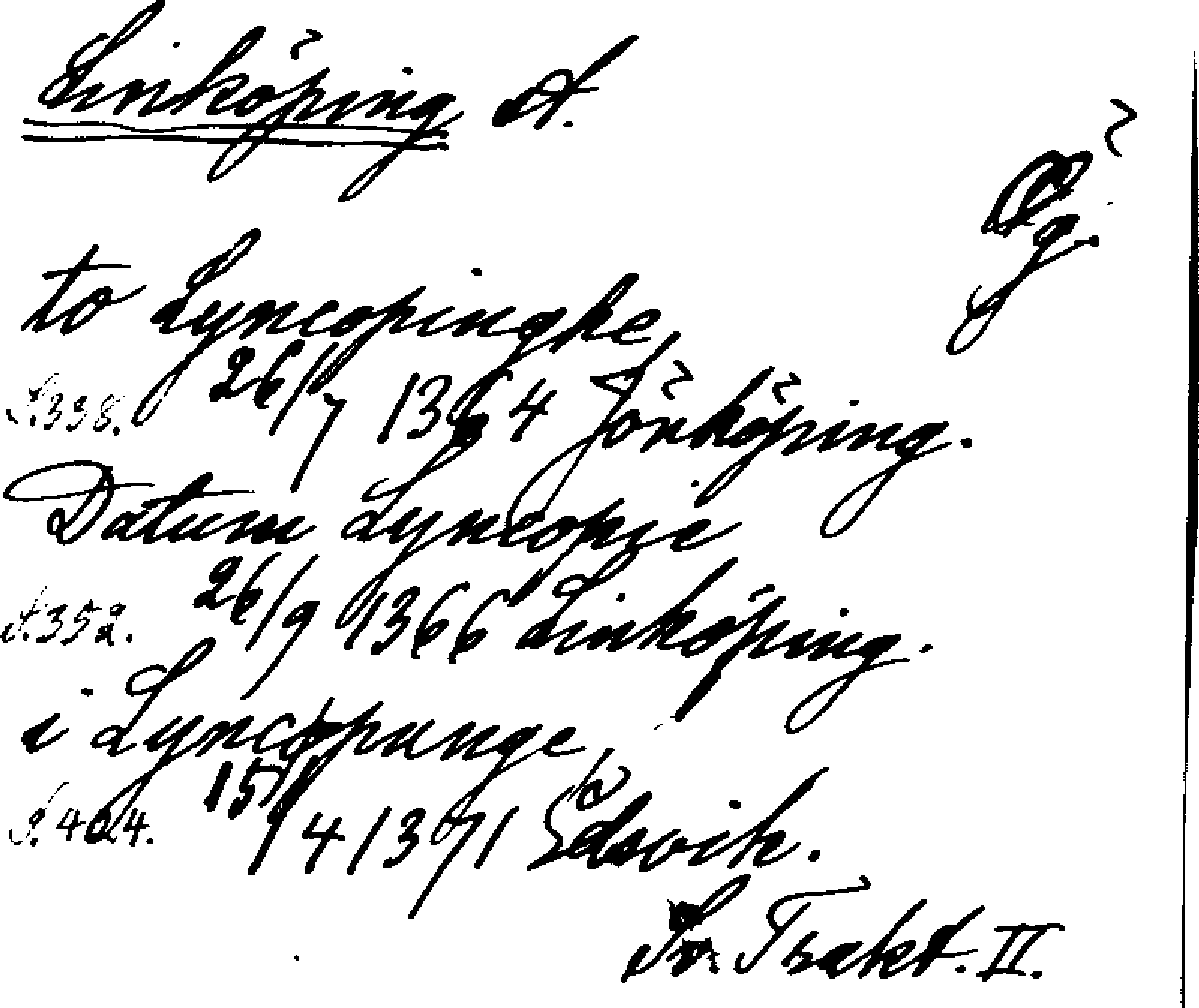 Linköping st.
Ög.
to Lyncopinghe,
s. 338. 26/7 1364 Jönköping.
Datum Lyncopie
s. 352. 26/9 1366 Linköping.
i Lyncopunge,
s. 404. 15/4 1371 Edsvik.
Sv. Trakt. II.